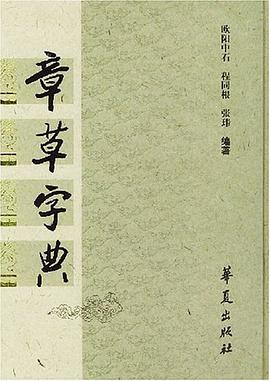 欧阳中石 程同根 张玮 编著
章草字典
華夏出版社